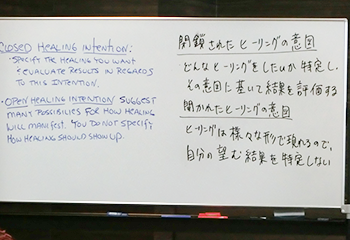 CLOSED HEALING INTENTION:
• SPECIFY THE HEALING YOU WANT
& EVALUATE RESULTS IN REGARDS
TO THIS INTENTION.
• OPEN HEALING INTENTION SUGGEST
MANY POSSIBILITIES FOR HOW HEALING
WILL MANIFEST. YOU DO NOT SPECIFY
HOW HEALING SHOULD SHOW UP.
閉鎖されたヒーリングの意図
どんなヒーリングをしたいか特定し、
その意図に基いて結果を評価する
開かれたヒーリングの意図
ヒーリングは様々な形で現れるので、
自分の望む結果を特定しない